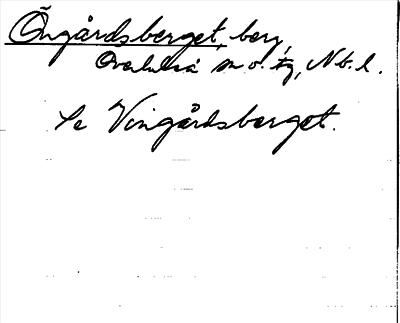 Öngårdsberget, berg,
Överluleå sn o. tg, Nb. l.
Se Vingårdsberget.